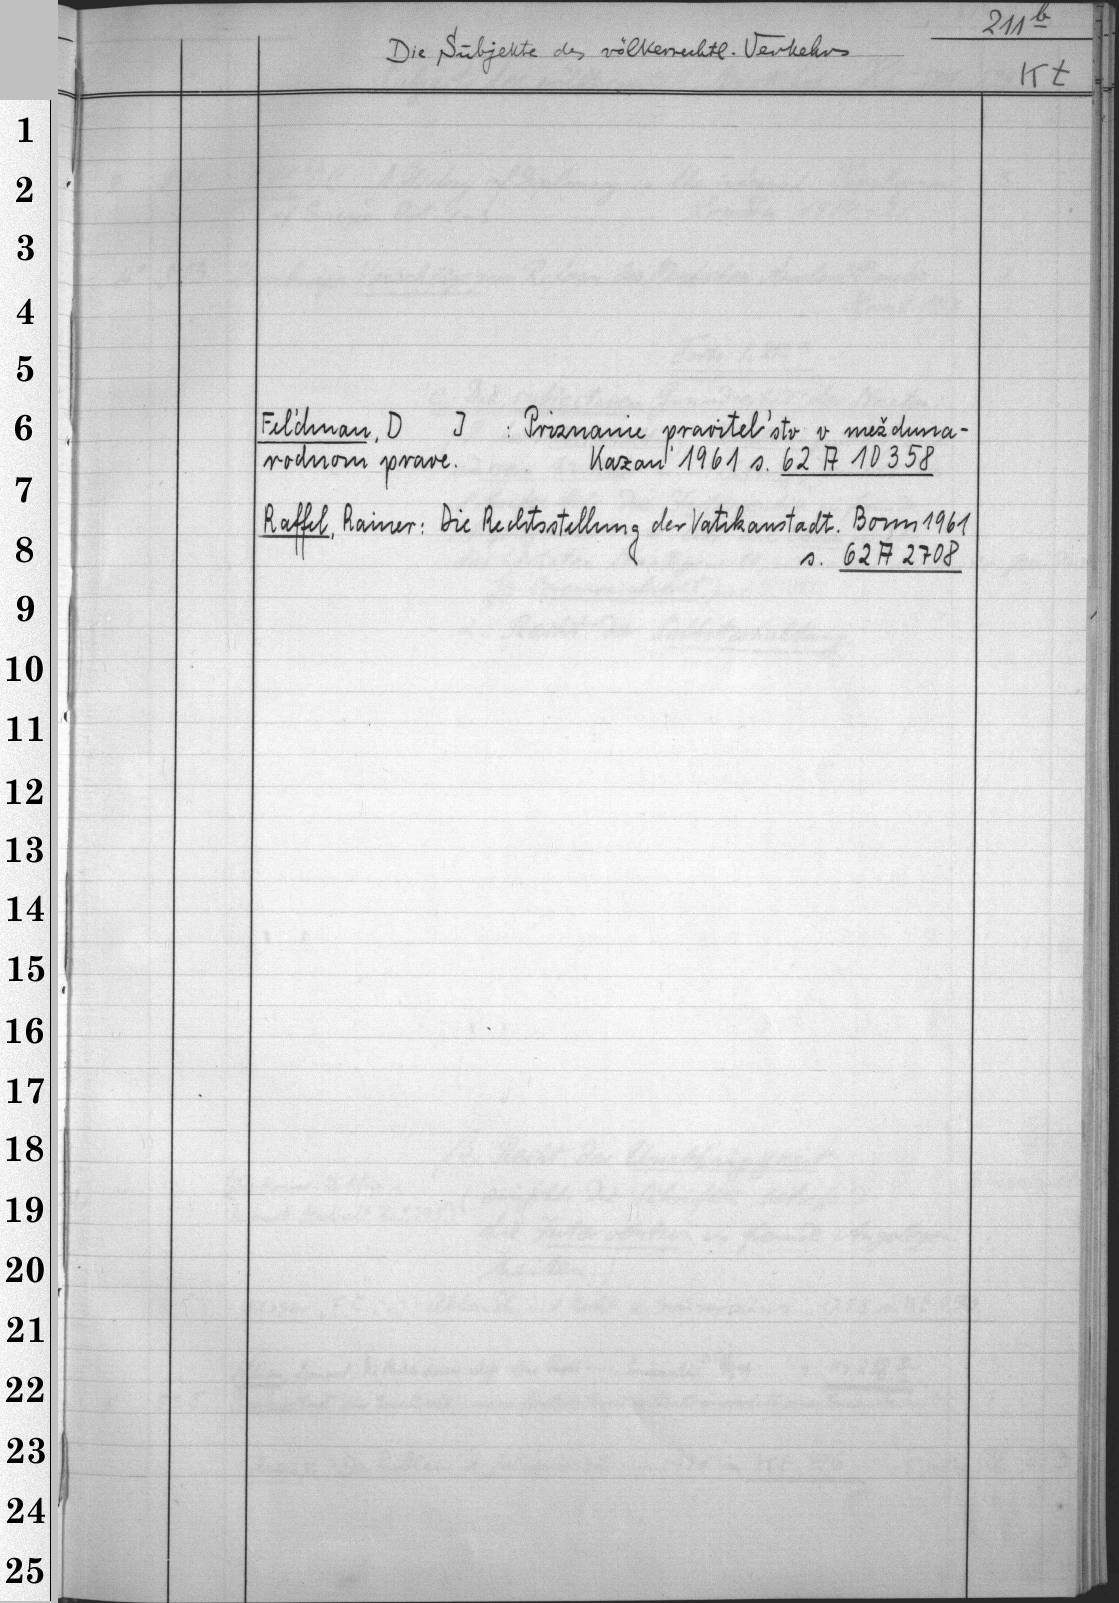 211 b
Die Subjekte des völkerrechtl. Verkehrs
Kt
1
2
3
4
5
6
7
8
9
10
11
12
13
14
15
16
17
18
19
20
21
22
23
24
25
Fel'dman, D J : Priznanie pravitel'stv v mežduna-
rodnom prave. Kazan' 1961 s. 62 A 10358
Raffel, Rainer: Die Rechtsstellung der Vatikanstadt. Bonn 1961
s. 62 A 2708